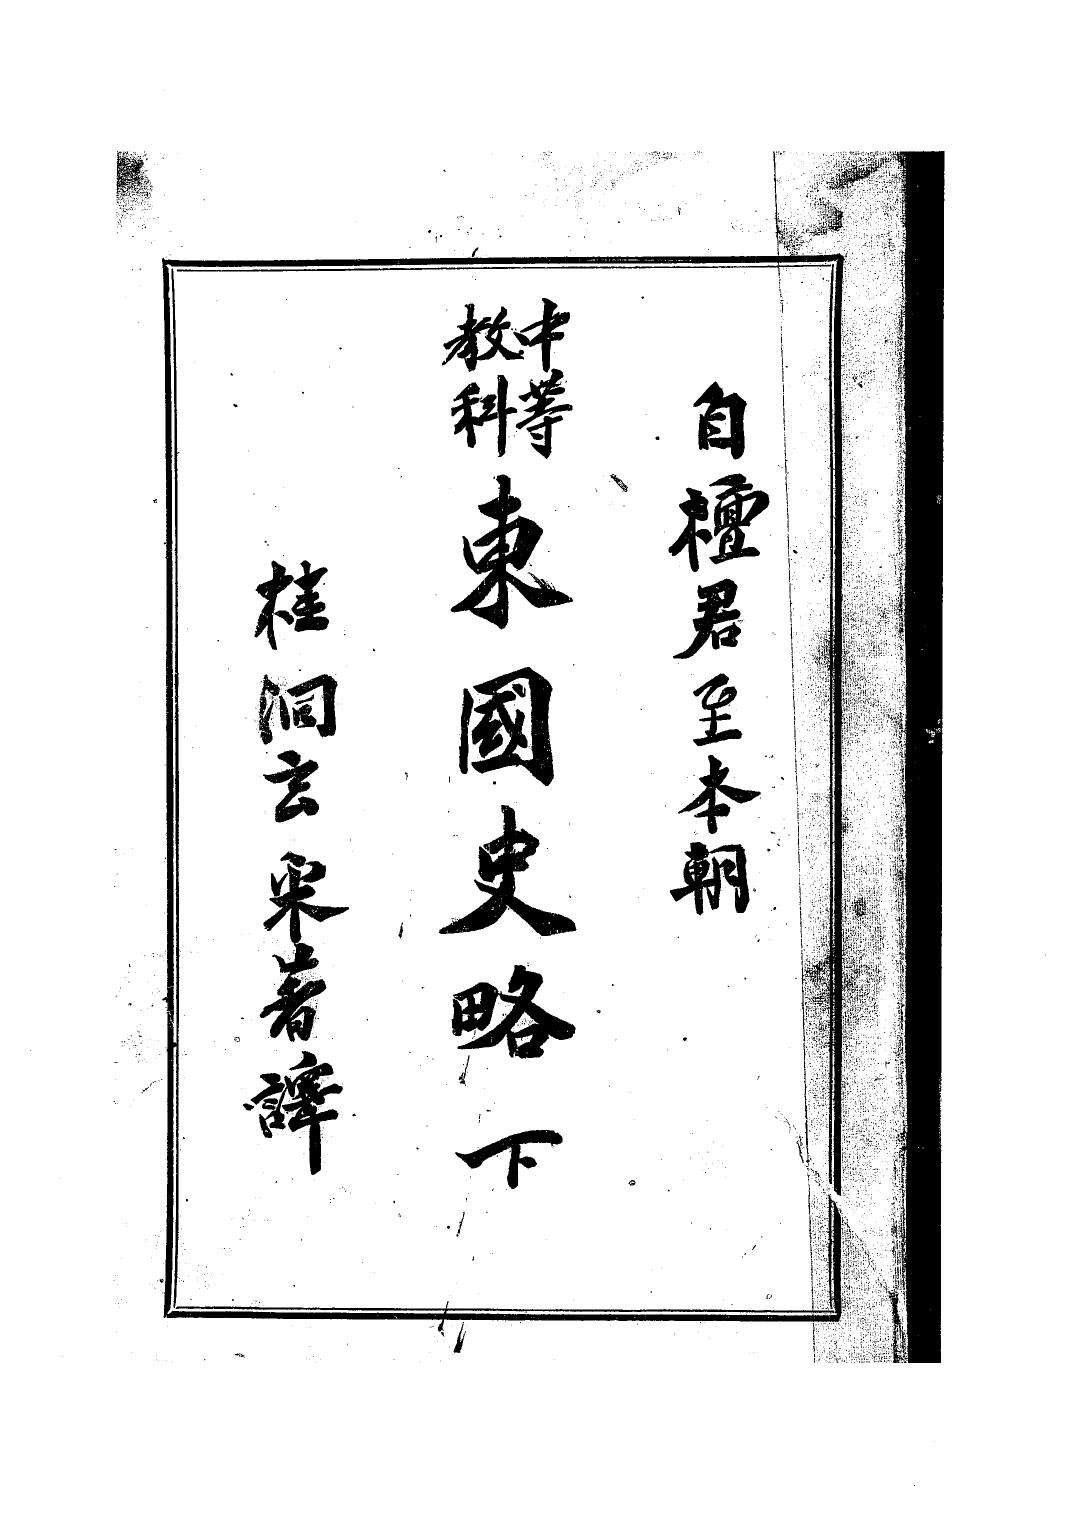 自檀君至本朝
中等教科東國史略下
桂洞玄采著譯